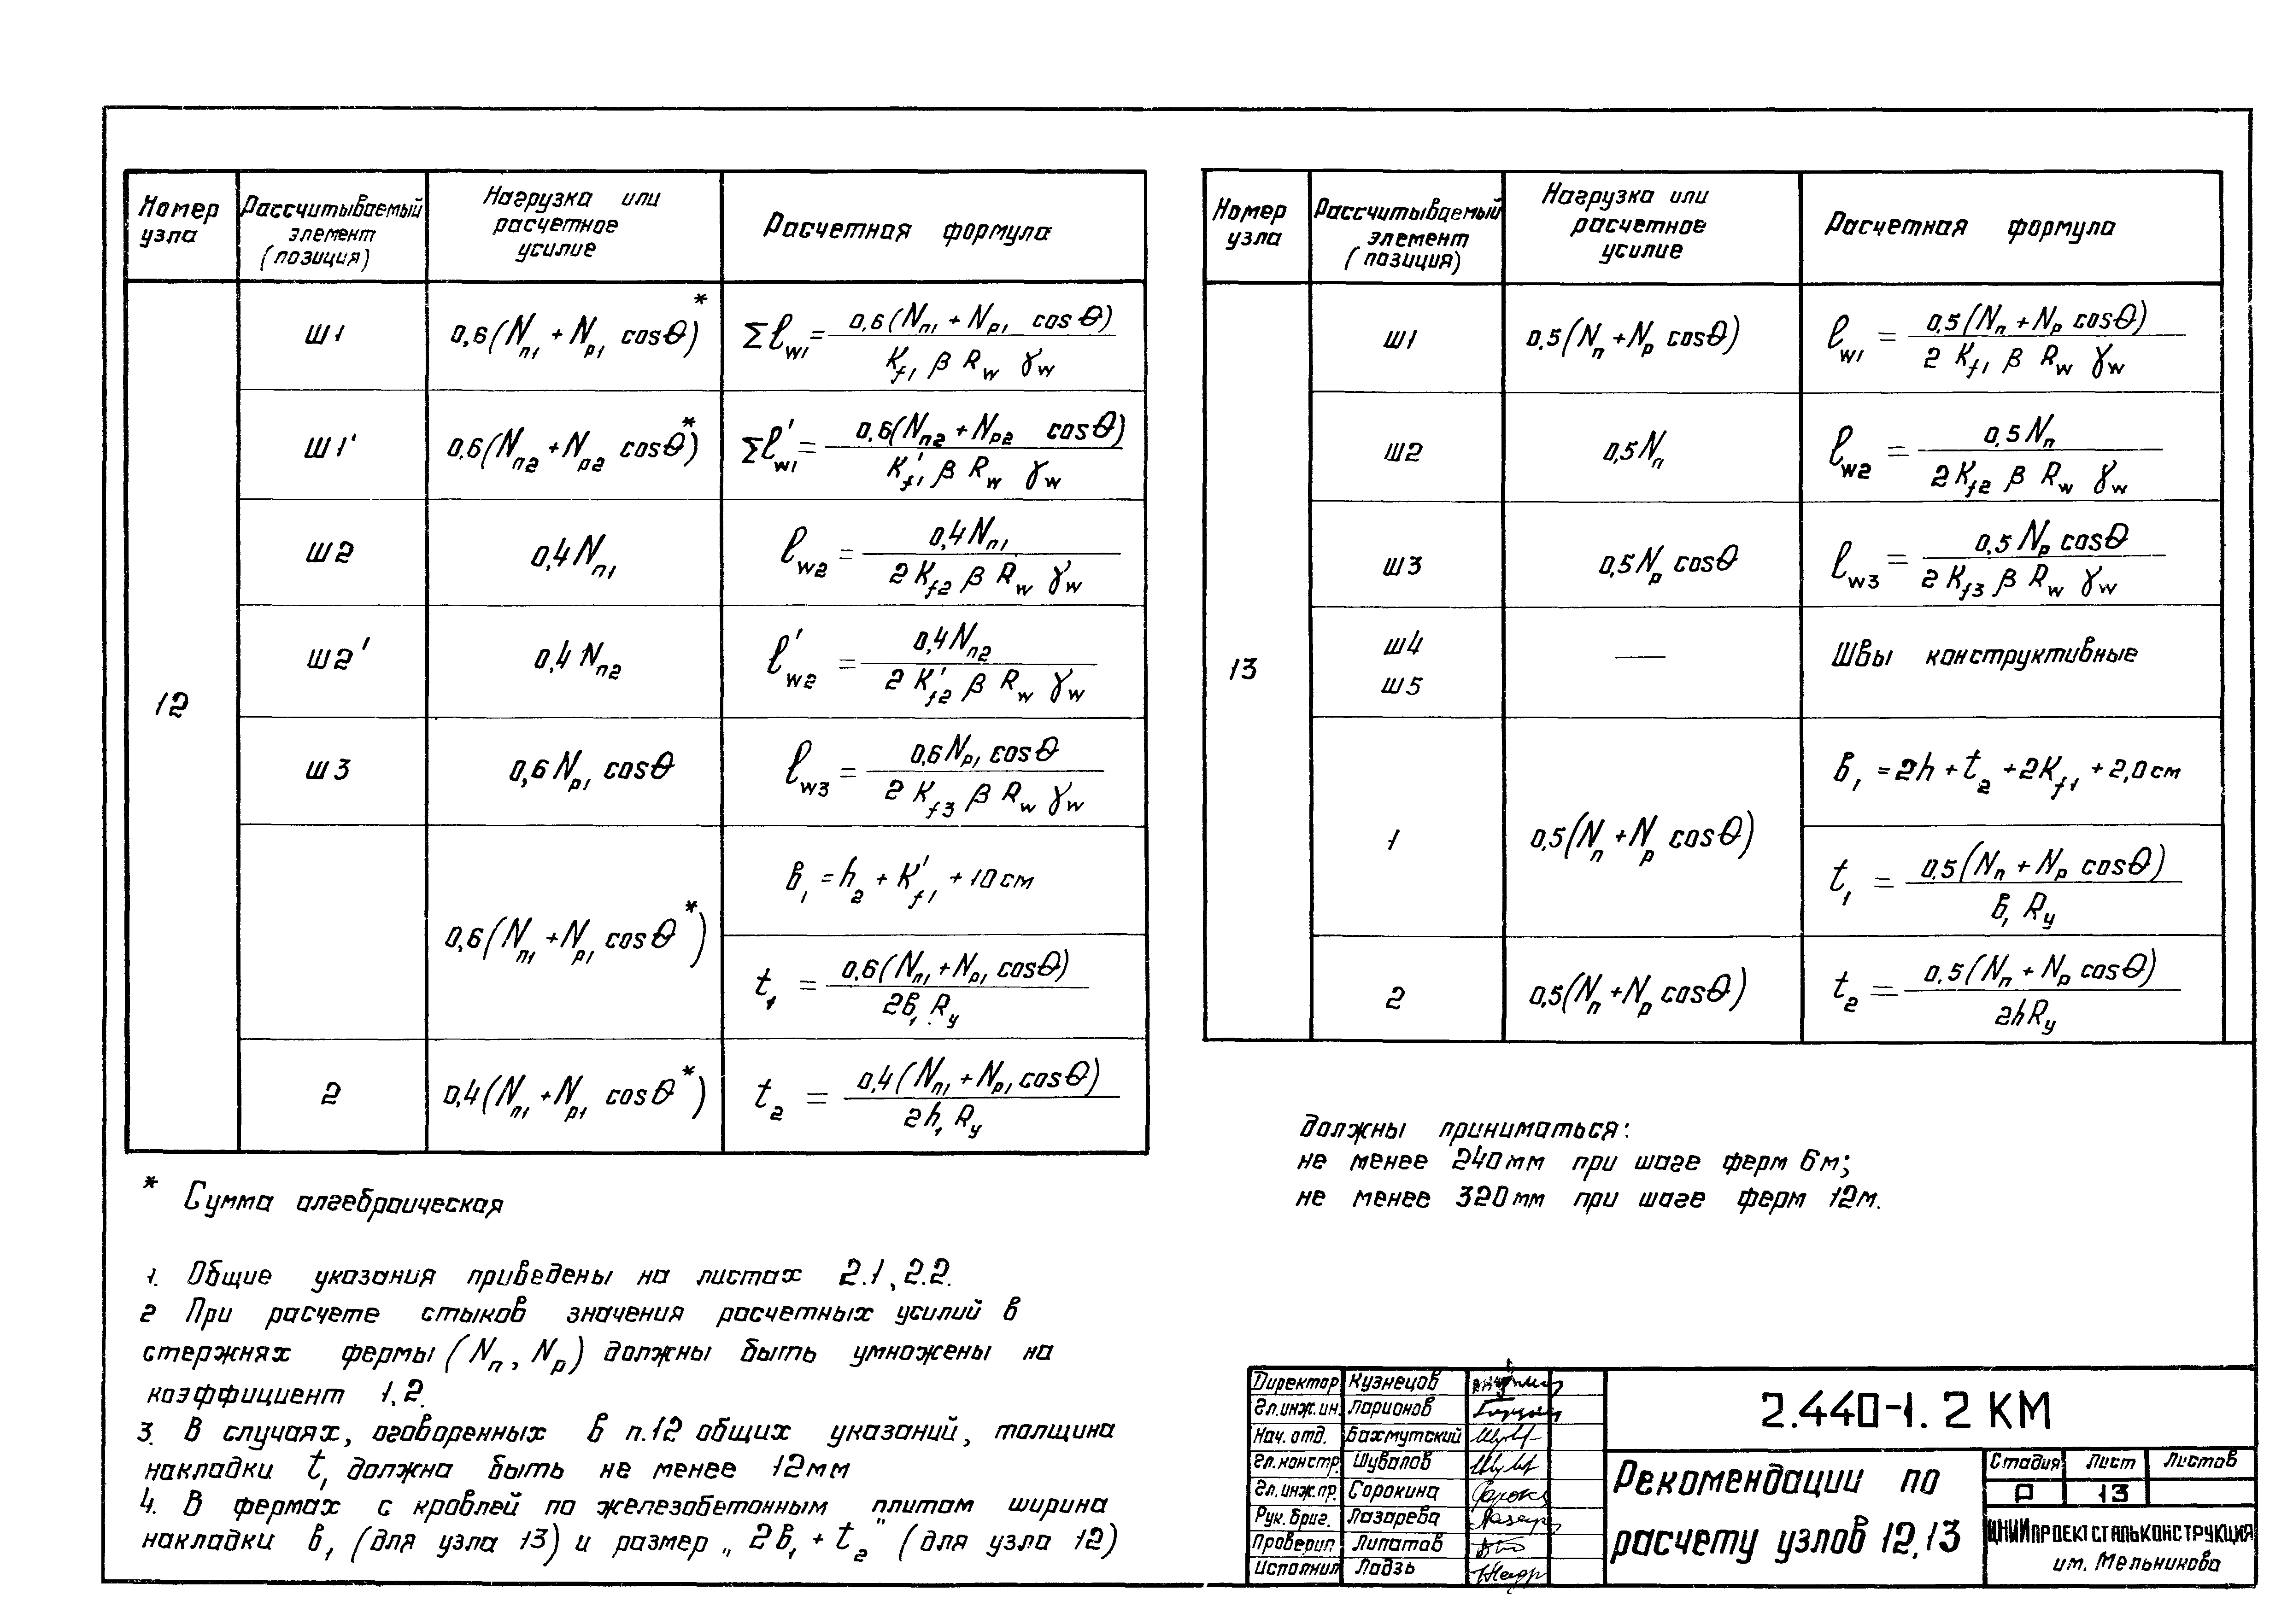 Номер узла | Рассчитываемый элемент (позиция) | Нагрузка или расчетное усилие | Расчетная формула
12
Ш1 | 0,6(Nп1 + Nр1 cosθ)* | Σℓw1 = 0,6(Nп1 + Nр1 cosθ) / Kf1 β Rw γw
Ш1' | 0,6(Nп2 + Nр2 cosθ)* | Σℓ'w1 = 0,6(Nп2 + Nр2 cosθ) / K'f1 β Rw γw
Ш2 | 0,4Nп1 | ℓw2 = 0,4Nп1 / 2Kf2 β Rw γw
Ш2' | 0,4Nп2 | ℓ'w2 = 0,4Nп2 / 2K'f2 β Rw γw
Ш3 | 0,6Nр1 cosθ | ℓw3 = 0,6Nр1 cosθ / 2Kf3 β Rw γw
0,6(Nп1 + Nр1 cosθ*) | в1 = h2 + K'f1 + 10см
t1 = 0,6(Nп1 + Nр1 cosθ) / 2в1 Ry
2 | 0,4(Nп1 + Nр1 cosθ*) | t2 = 0,4(Nп1 + Nр1 cosθ) / 2h1 Ry
* Сумма алгебраическая
1. Общие указания приведены на листах 2.1, 2.2.
2 При расчете стыков значения расчетных усилий в
стержнях фермы (Nп, Nр) должны быть умножены на
коэффициент 1,2.
3. В случаях, оговоренных в п.12 общих указаний, толщина
накладки t1 должна быть не менее 12мм
4. В фермах с кровлей по железобетонным плитам ширина
накладки в1 (для узла 13) и размер „2в1 + t2" (для узла 12)
Номер узла | Рассчитываемый элемент (позиция) | Нагрузка или расчетное усилие | Расчетная формула
13
Ш1 | 0.5(Nп + Nр cosθ) | ℓw1 = 0.5(Nп + Nр cosθ) / 2 Kf1 β Rw γw
Ш2 | 0,5Nп | ℓw2 = 0,5Nп / 2Kf2 β Rw γw
Ш3 | 0.5Nр cosθ | ℓw3 = 0,5Nр cosθ / 2Kf3 β Rw γw
Ш4
Ш5 | — | Швы конструктивные
1 | 0,5(Nп + Nр cosθ) | в1 = 2h + t2 + 2Kf1 + 2,0см
t1 = 0.5(Nп + Nр cosθ) / в1 Ry
2 | 0,5(Nп + Nр cosθ) | t2 = 0.5(Nп + Nр cosθ) / 2hRy
должны приниматься:
не менее 240мм при шаге ферм 6м;
не менее 320мм при шаге ферм 12м.
Директор Кузнецов
Гл.инж.ин. Ларионов
Нач. отд. Бахмутский
Гл.констр. Шувалов
Гл.инж.пр. Сорокина
Рук. бриг. Лазарева
Проверил Липатов
Исполнил Ладзь
2.440-1.2 КМ
Рекомендации по
расчету узлов 12,13
Стадия Лист Листов
Р 13
ЦНИИПРОЕКТСТАЛЬКОНСТРУКЦИЯ
им. Мельникова